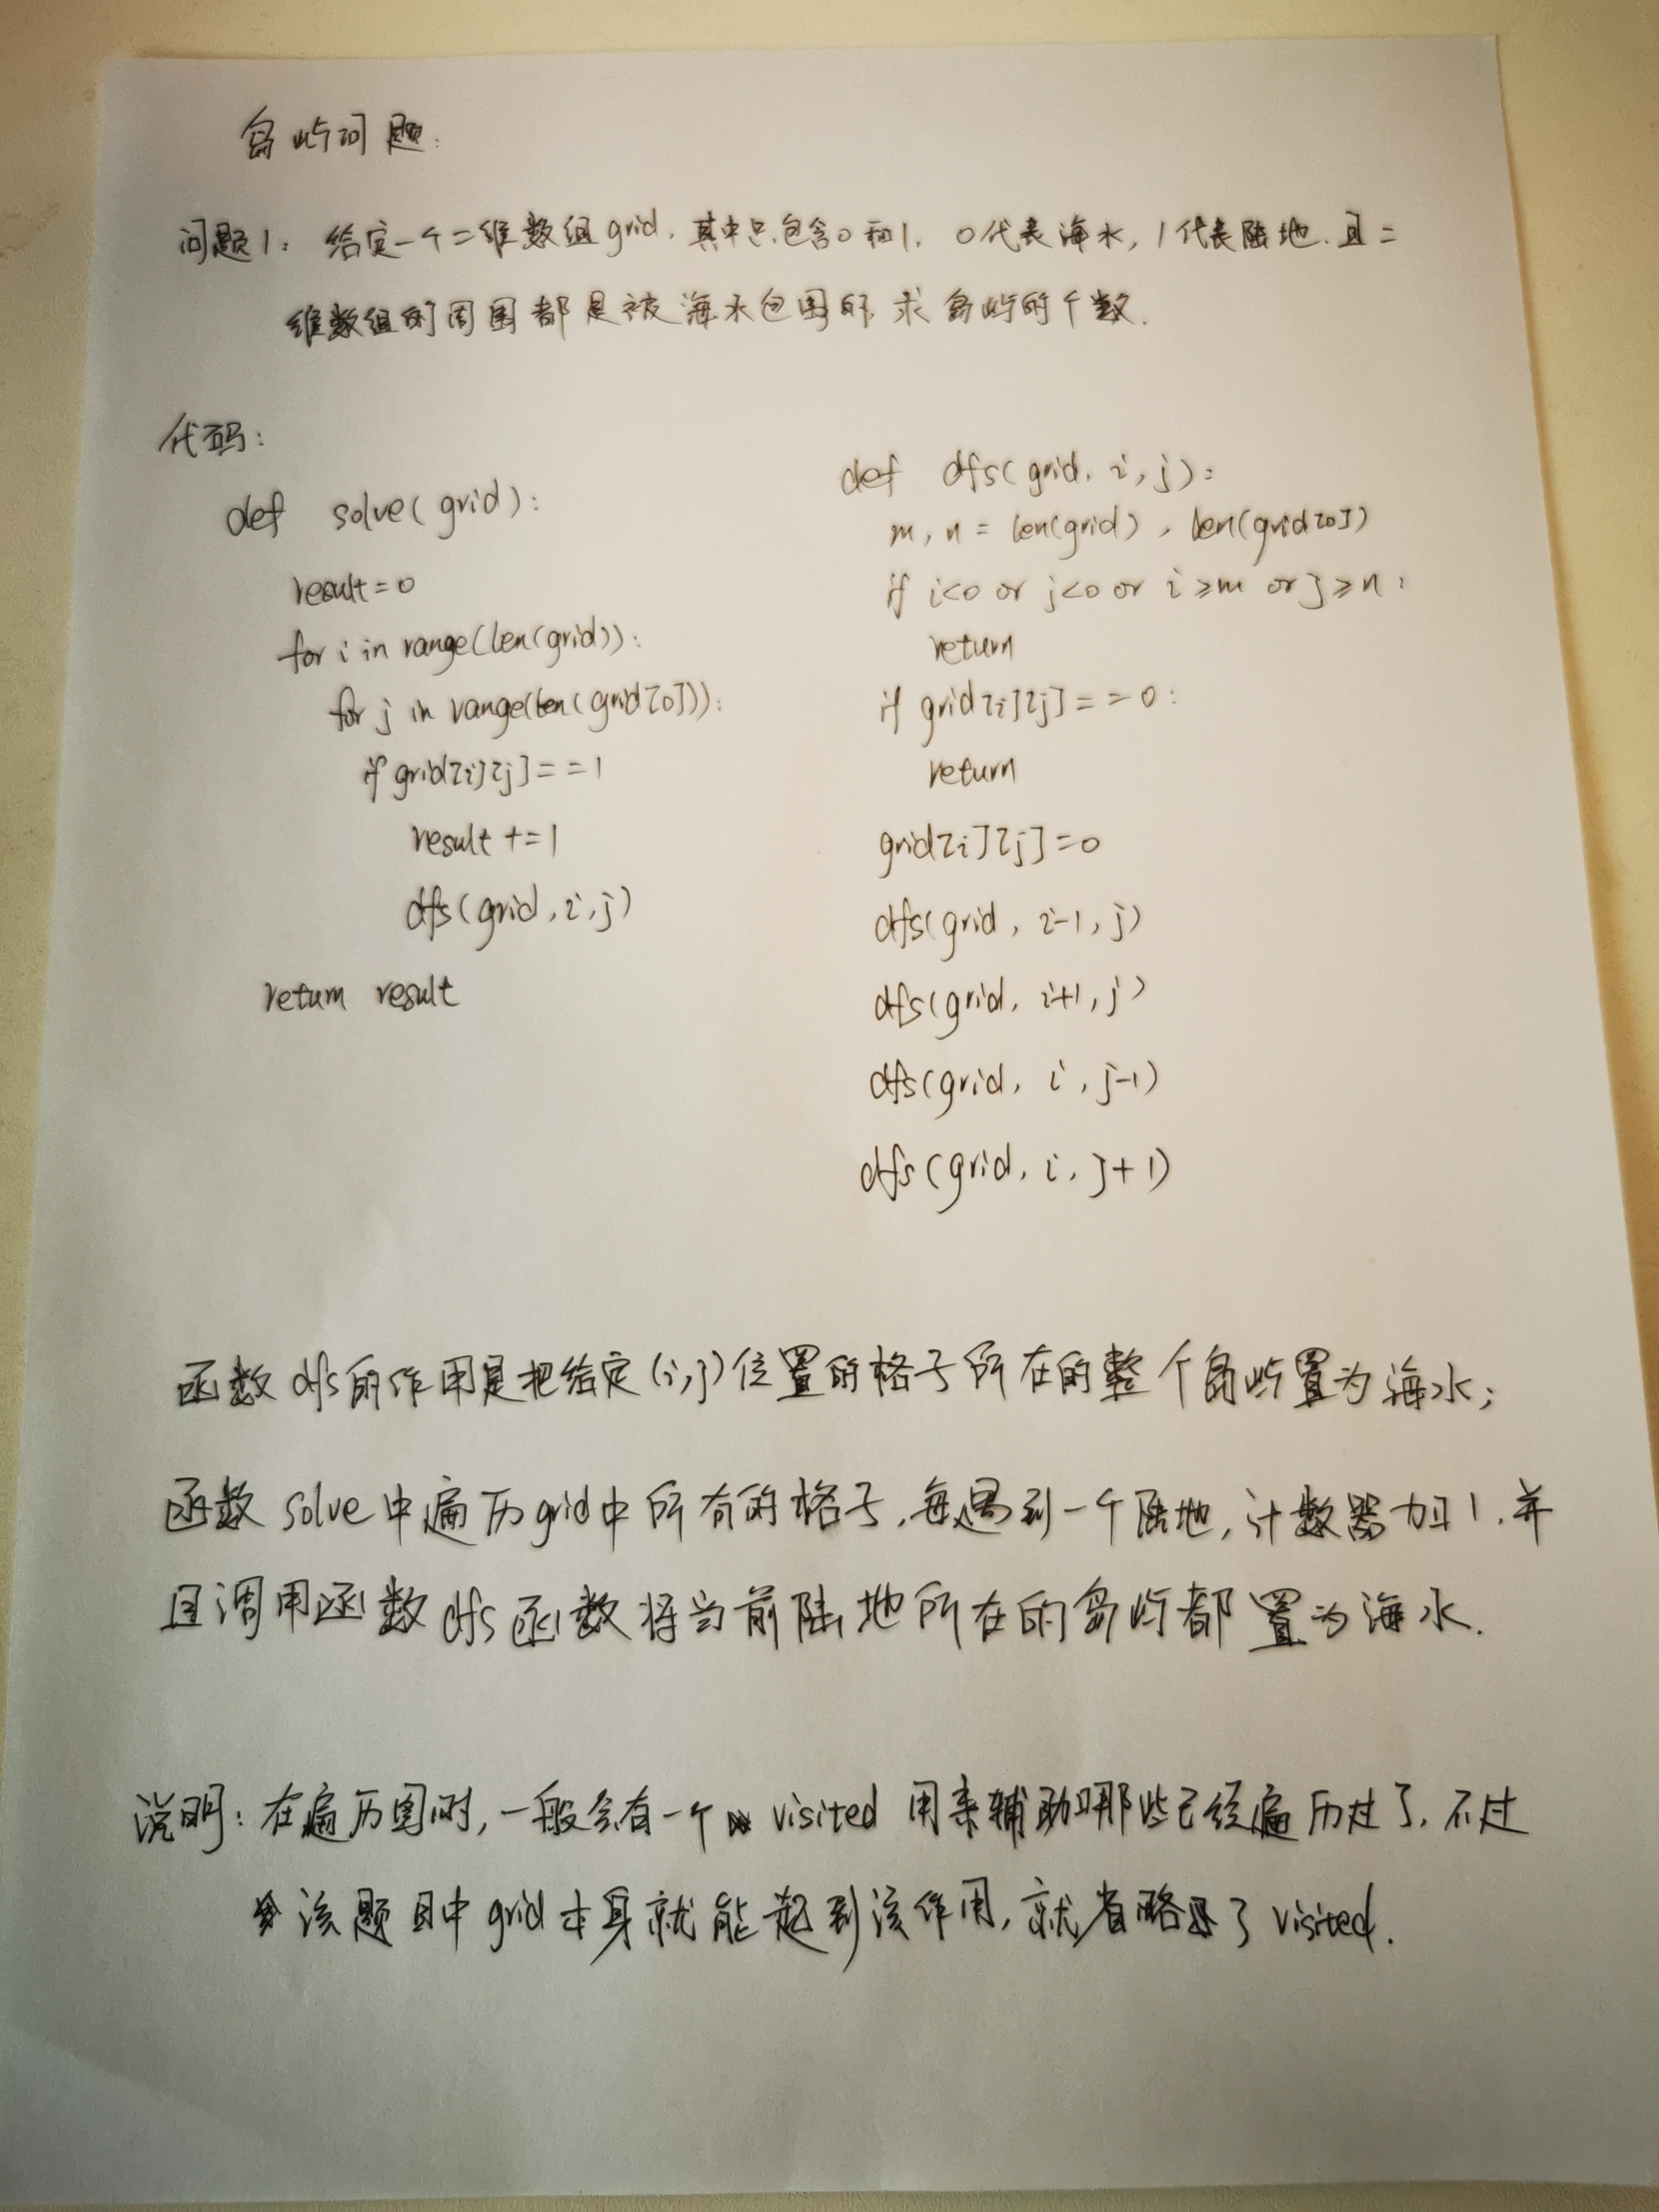 岛屿问题:
问题1: 给定一个二维数组grid, 其中只包含0和1, 0代表海水, 1代表陆地, 且二
维数组的周围都是被海水包围的, 求岛屿的个数.
代码:
def solve(grid):
result=0
for i in range(len(grid)):
for j in range(len(grid[0])):
if grid[i][j]==1
result +=1
dfs(grid,i,j)
return result
def dfs(grid, i, j):
m, n = len(grid), len(grid[0])
if i<0 or j<0 or i≥m or j≥n:
return
if grid[i][j]==0:
return
grid[i][j]=0
dfs(grid, i-1, j)
dfs(grid, i+1, j)
dfs(grid, i, j-1)
dfs(grid, i, j+1)
函数dfs的作用是把给定(i,j)位置的格子所在的整个岛屿置为海水;
函数solve中遍历grid中所有的格子,每遇到一个陆地,计数器加1,并
且调用函数dfs函数将当前陆地所在的岛屿都置为海水.
说明:在遍历图时,一般会有一个visited用来辅助哪些已经遍历过了,不过
该题目中grid本身就能起到该作用,就省略了visited.